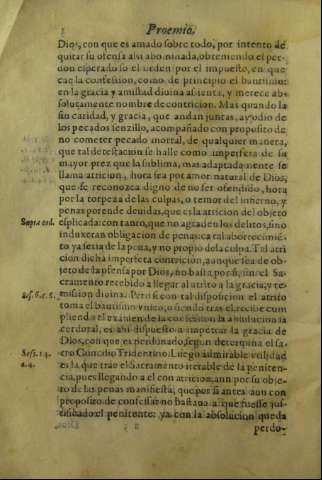 Proemio.
Dios, con que es amado sobre todo, por intento de
quitar su ofensa assi abominada, obteniendo el per-
don esperado so el orden por el impuesto, en que
cae la confession, como de principio el bautismo:
en la gracia y amistad divina assienta, y merece ab-
solutamente nombre de contricion. Mas quando la
sin caridad, y gracia, que andan juntas, ay odio de
los pecados senzillo, acompañado con proposito de
no cometer pecado mortal, de qualquier manera,
que tal detestacion se halle como imperfeta de su
mayor prez que la sublima, mas adaptadamente se
llama atricion, hora sea por amor natural de Dios,
que se reconozca digno de no ser ofendido, hora
por la torpeza de las culpas, o temor del infierno, y
penas por ende devidas, que es la atricion del objeto
Supra ord.
esplicada: con tanto, que no agrade los delitos, sino
induxeran obligacion de pena, cuyo tal aborrecimiẽ-
to ya seria de la pena, y no propio de la culpa. Y el atri
cion dicha imperfeta contricion, aunque sea de ob-
jeto de la ofensa por Dios, no basta por si, sin el Sa-
cramento recebido a llegar al atrito a la gracia, y re-
Ses. 6. c. 6.
mission divina. Pero si con tal disposicion el atrito
toma el bautismo unico, o siendo tras el recibe cum
pliendo el examen de la confession la absolucion sa
cerdotal, es assi dispuesto a impetrar la gracia de
Dios, con que es perdonado, segun determina el sa-
Sess. 14.
cro Concilio Tridentino. Luego admirable utilidad
c. 4.
es la que trae el Sacramento iterable de la peniten-
cia, pues llegando a el con atricion, aun por su obje-
to de las penas manifiesta, que por si antes aun con
proposito de confessar no bastava a que fuesse jus-
tificado el penitente: ya con la absolucion queda
perdo-